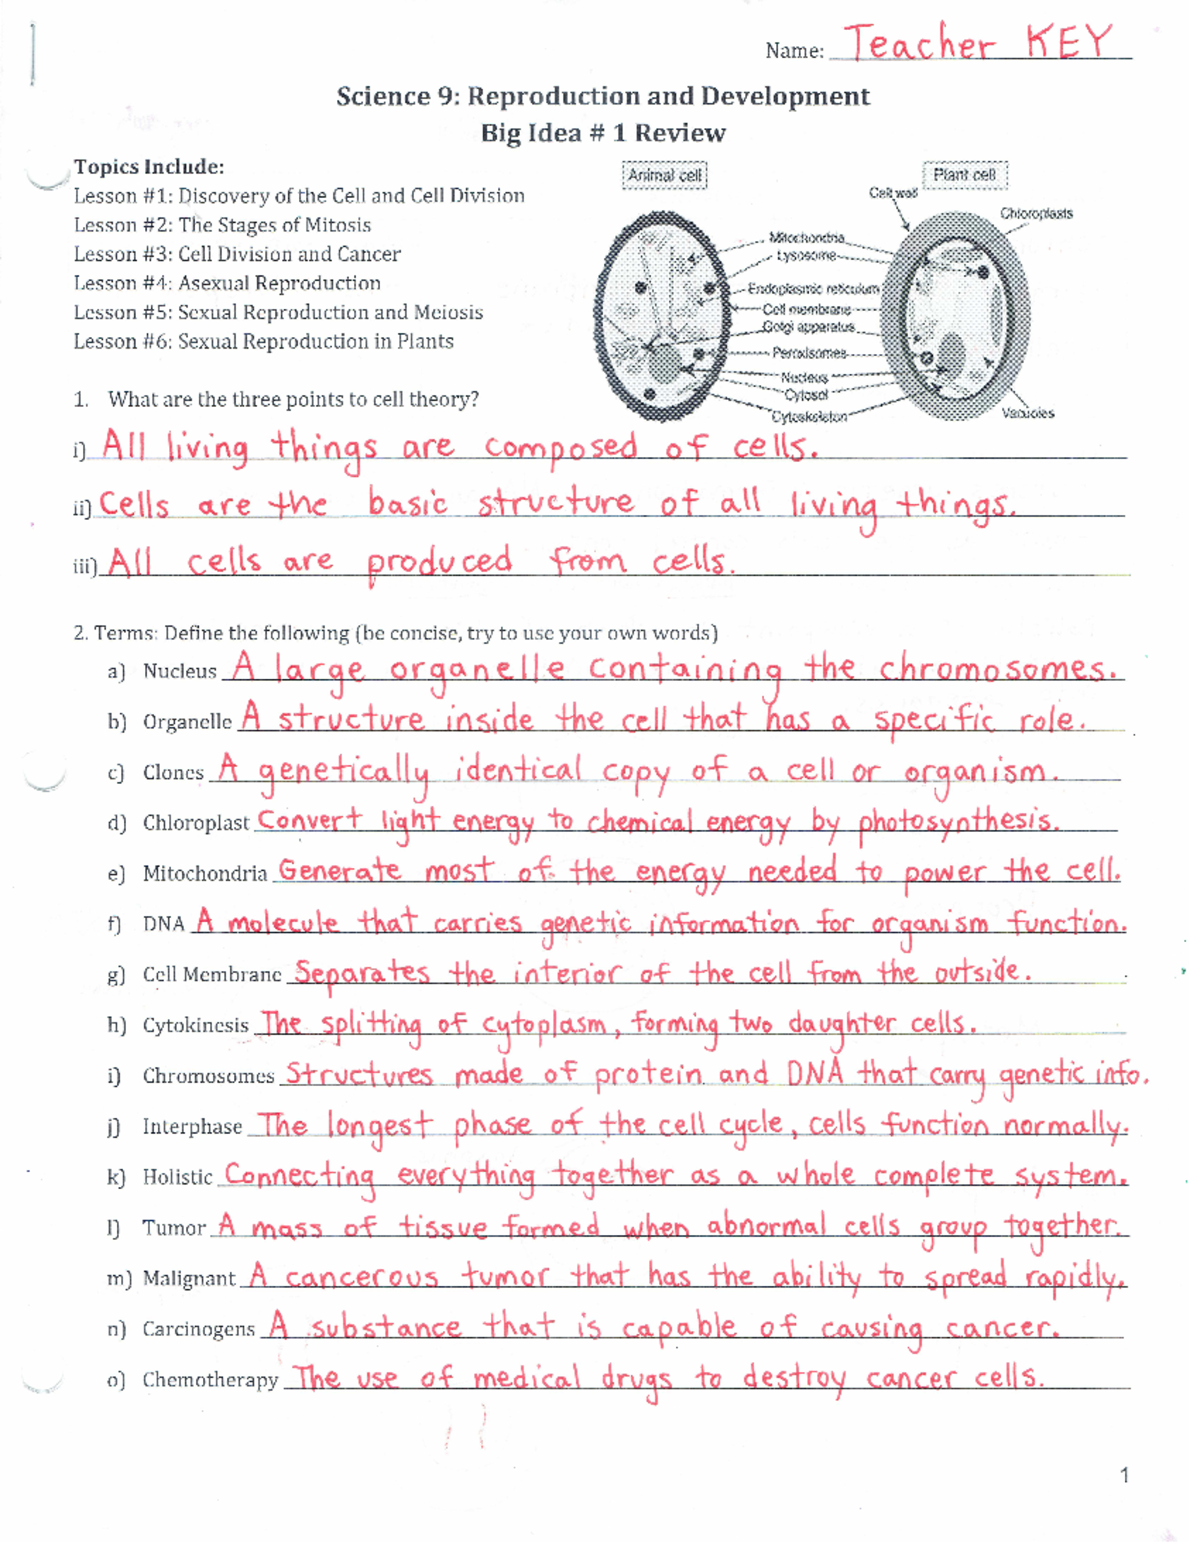 Name: Teacher KEY
Science 9: Reproduction and Development
Big Idea # 1 Review
Topics Include:
Lesson #1: Discovery of the Cell and Cell Division
Lesson #2: The Stages of Mitosis
Lesson #3: Cell Division and Cancer
Lesson #4: Asexual Reproduction
Lesson #5: Sexual Reproduction and Meiosis
Lesson #6: Sexual Reproduction in Plants
Animal cell
Plant cell
Cell wall
Chloroplasts
Mitochondria
Lysosome
Endoplasmic reticulum
Cell membrane
Golgi apparatus
Peroxisomes
Nucleus
Cytosol
Cytoskeleton
Vacuoles
1. What are the three points to cell theory?
i) All living things are composed of cells.
ii) Cells are the basic structure of all living things.
iii) All cells are produced from cells.
2. Terms: Define the following (be concise, try to use your own words)
a) Nucleus A large organelle containing the chromosomes.
b) Organelle A structure inside the cell that has a specific role.
c) Clones A genetically identical copy of a cell or organism.
d) Chloroplast Convert light energy to chemical energy by photosynthesis.
e) Mitochondria Generate most of the energy needed to power the cell.
f) DNA A molecule that carries genetic information for organism function.
g) Cell Membrane Separates the interior of the cell from the outside.
h) Cytokinesis The splitting of cytoplasm, forming two daughter cells.
i) Chromosomes Structures made of protein and DNA that carry genetic info.
j) Interphase The longest phase of the cell cycle, cells function normally.
k) Holistic Connecting everything together as a whole complete system.
l) Tumor A mass of tissue formed when abnormal cells group together.
m) Malignant A cancerous tumor that has the ability to spread rapidly.
n) Carcinogens A substance that is capable of causing cancer.
o) Chemotherapy The use of medical drugs to destroy cancer cells.
1